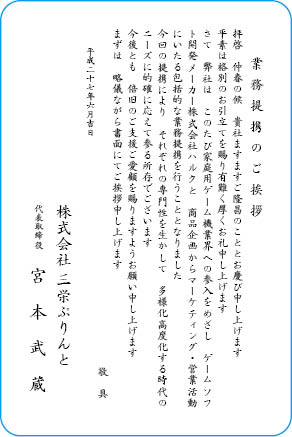 業務提携のご挨拶
拝啓　仲春の候　貴社ますますご隆昌のこととお慶び申し上げます
平素は格別のお引立てを賜り有難く厚くお礼申し上げます
さて　弊社は　このたび家庭用ゲーム機業界への参入をめざし　ゲームソフ
ト開発メーカー株式会社ハルクと　商品企画からマーケティング・営業活動
にいたる包括的な業務提携を行うこととなりました
今回の提携により　それぞれの専門性を生かして　多様化高度化する時代の
ニーズに的確に応えて参る所存でございます
今後とも　倍旧のご支援ご愛顧を賜りますようお願い申し上げます
まずは　略儀ながら書面にてご挨拶申し上げます
敬具
平成二十七年六月吉日
株式会社 三栄ぷりんと
代表取締役　宮本武蔵